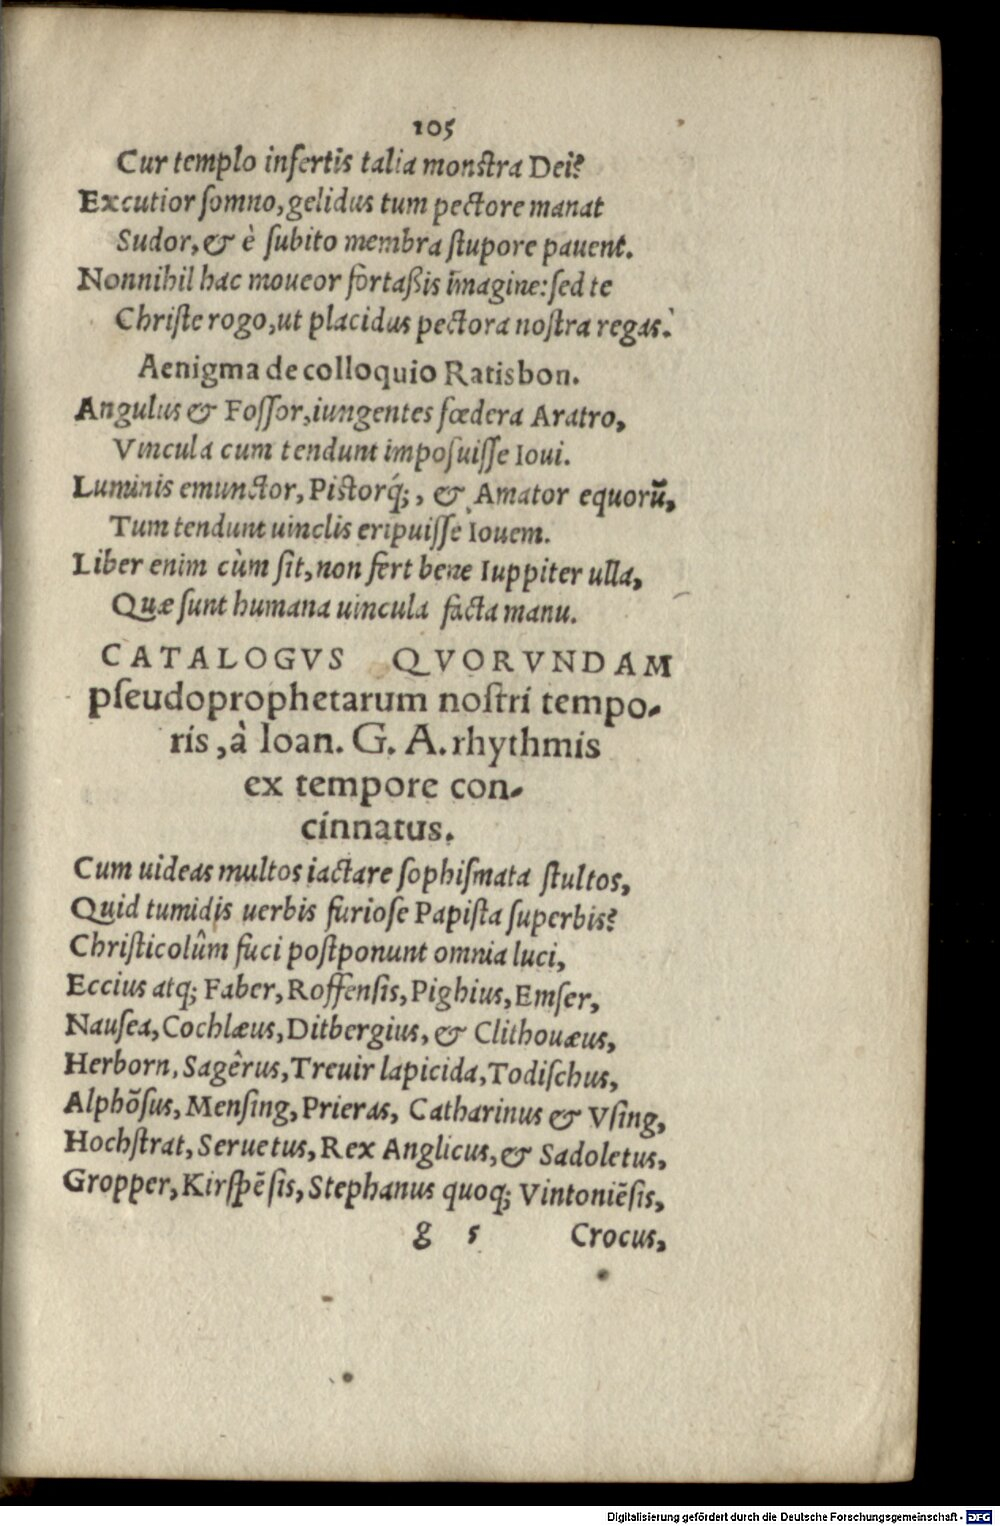 105
Cur templo inſertis talia monſtra Dei?
Excutior ſomno, gelidus tum pectore manat
Sudor, & è ſubito membra ſtupore pauent.
Nonnihil hac moueor fortaßis imagine: ſed te
Chriſte rogo, ut placidus pectora noſtra regas.
Aenigma de colloquio Ratisbon.
Angulus & Foſſor, iungentes fœdera Aratro,
Vincula cum tendunt impoſuiſſe Ioui.
Luminis emunctor, Pictorq́;, & Amator equorũ,
Tum tendunt uinclis eripuiſſe Iouem.
Liber enim cùm ſit, non fert bene Iuppiter ulla,
Quæ ſunt humana uincula facta manu.
CATALOGVS QVORVNDAM
pſeudoprophetarum noſtri tempo-
ris, à Ioan. G. A. rhythmis
ex tempore con-
cinnatus.
Cum uideas multos iactare ſophiſmata ſtultos,
Quid tumidis uerbis furioſe Papiſta ſuperbis?
Chriſticolûm fuci poſtponunt omnia luci,
Eccius atq; Faber, Roffenſis, Pighius, Emſer,
Nauſea, Cochlæus, Ditbergius, & Clithouæus,
Herborn, Sagêrus, Treuir lapicida, Todiſchus,
Alphõſus, Menſing, Prieras, Catharinus & Vſing,
Hochſtrat, Seruetus, Rex Anglicus, & Sadoletus,
Gropper, Kirſpẽſis, Stephanus quoq; Vintoniẽſis,
g 5 Crocus,
Digitalisierung gefördert durch die Deutsche Forschungsgemeinschaft - DFG